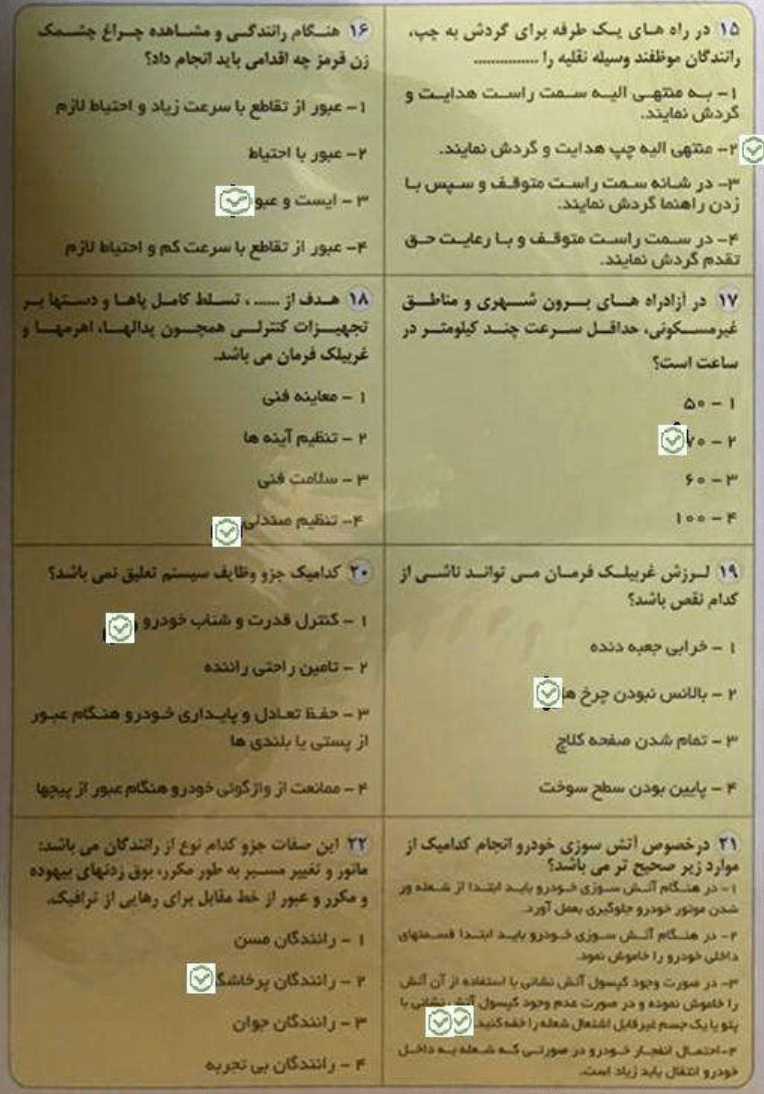 ۱۵ در راه های یک طرفه برای گردش به چپ،
رانندگان موظفند وسیله نقلیه را ...............
۱- به منتهی الیه سمت راست هدایت و
گردش نمایند.
۲- منتهی الیه چپ هدایت و گردش نمایند.
۳- در شانه سمت راست متوقف و سپس با
زدن راهنما گردش نمایند.
۴- در سمت راست متوقف و با رعایت حق
تقدم گردش نمایند.
۱۶ هنگام رانندگی و مشاهده چراغ چشمک
زن قرمز چه اقدامی باید انجام داد؟
۱- عبور از تقاطع با سرعت زیاد و احتیاط لازم
۲- عبور با احتیاط
۳ - ایست و عبو
۴- عبور از تقاطع با سرعت کم و احتیاط لازم
۱۷ در آزادراه های برون شهری و مناطق
غیرمسکونی، حداقل سرعت چند کیلومتر در
ساعت است؟
۱ - ۵۰
۲ - ۷۰
۳ - ۶۰
۴ - ۱۰۰
۱۸ هدف از ......، تسلط کامل پاها و دستها بر
تجهیزات کنترلی همچون پدالها، اهرمها و
غربیلک فرمان می باشد.
۱ - معاینه فنی
۲ - تنظیم آینه ها
۳ - سلامت فنی
۴- تنظیم صندلی
۱۹ لرزش غربیلک فرمان می تواند ناشی از
کدام نقص باشد؟
۱ - خرابی جعبه دنده
۲ - بالانس نبودن چرخ ها
۳ - تمام شدن صفحه کلاچ
۴ - پایین بودن سطح سوخت
۲۰ کدامیک جزو وظایف سیستم تعلیق نمی باشد؟
۱ - کنترل قدرت و شتاب خودرو
۲ - تامین راحتی راننده
۳ - حفظ تعادل و پایداری خودرو هنگام عبور
از پستی یا بلندی ها
۴ - ممانعت از واژگونی خودرو هنگام عبور از پیچها
۲۱ درخصوص آتش سوزی خودرو انجام کدامیک از
موارد زیر صحیح تر می باشد؟
۱- در هنگام آتش سوزی خودرو باید ابتدا از شعله ور
شدن موتور خودرو جلوگیری بعمل آورد.
۲- در هنگام آتش سوزی خودرو باید ابتدا قسمتهای
داخلی خودرو را خاموش نمود.
۳- در صورت وجود کپسول آتش نشانی با استفاده از آن آتش
را خاموش نموده و در صورت عدم وجود کپسول آتش نشانی با
پتو یا یک جسم غیرقابل اشتعال شعله را خفه کنید.
۴-احتمال انفجار خودرو در صورتی که شعله به داخل
خودرو انتقال یابد زیاد است.
۲۲ این صفات جزو کدام نوع از رانندگان می باشد:
مانور و تغییر مسیر به طور مکرر، بوق زدنهای بیهوده
و مکرر و عبور از خط مقابل برای رهایی از ترافیک.
۱ - رانندگان مسن
۲ - رانندگان پرخاشگ
۳ - رانندگان جوان
۴ - رانندگان بی تجربه